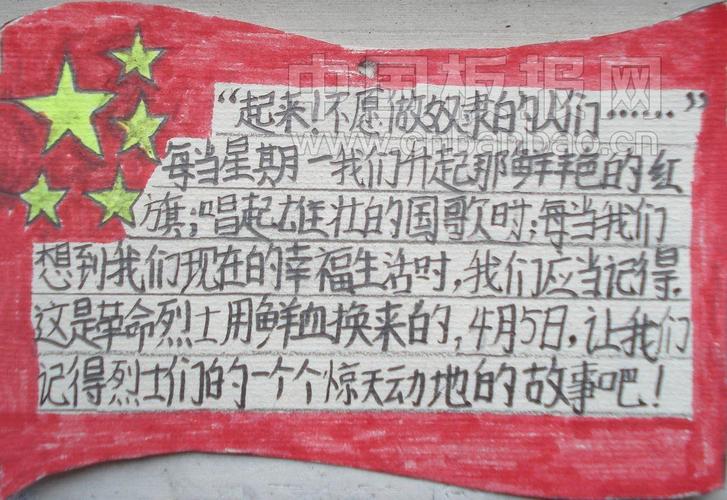 中国板报网
www.cnbanbao.cn
“起来！不愿做奴隶的人们……”
每当星期一我们升起那鲜艳的红
旗；唱起雄壮的国歌时；每当我们
想到我们现在的幸福生活时，我们应当记得，
这是革命烈士用鲜血换来的，4月5日，让我们
记得烈士们的一个个惊天动地的故事吧！